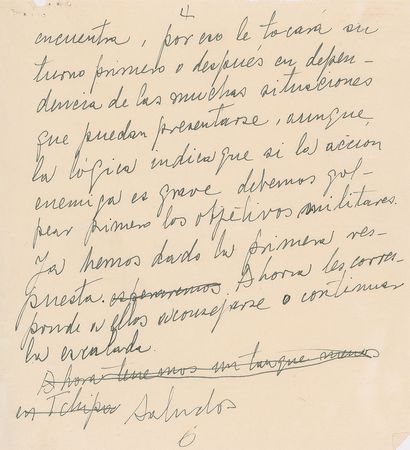 4
encuentra, por eso le tocará su
turno primero o después en depen-
dencia de las muchas situaciones
que puedan presentarse, aunque
la lógica indica que si la acción
enemiga es grave debemos gol-
pear primero los objetivos militares.
Ya hemos dado la primera res-
puesta. esperaremos. Ahora les corres-
ponde a ellos aconsejarse o continuar
la escalada.
Ahora tenemos un tanque menos
en Tchipa Saludos